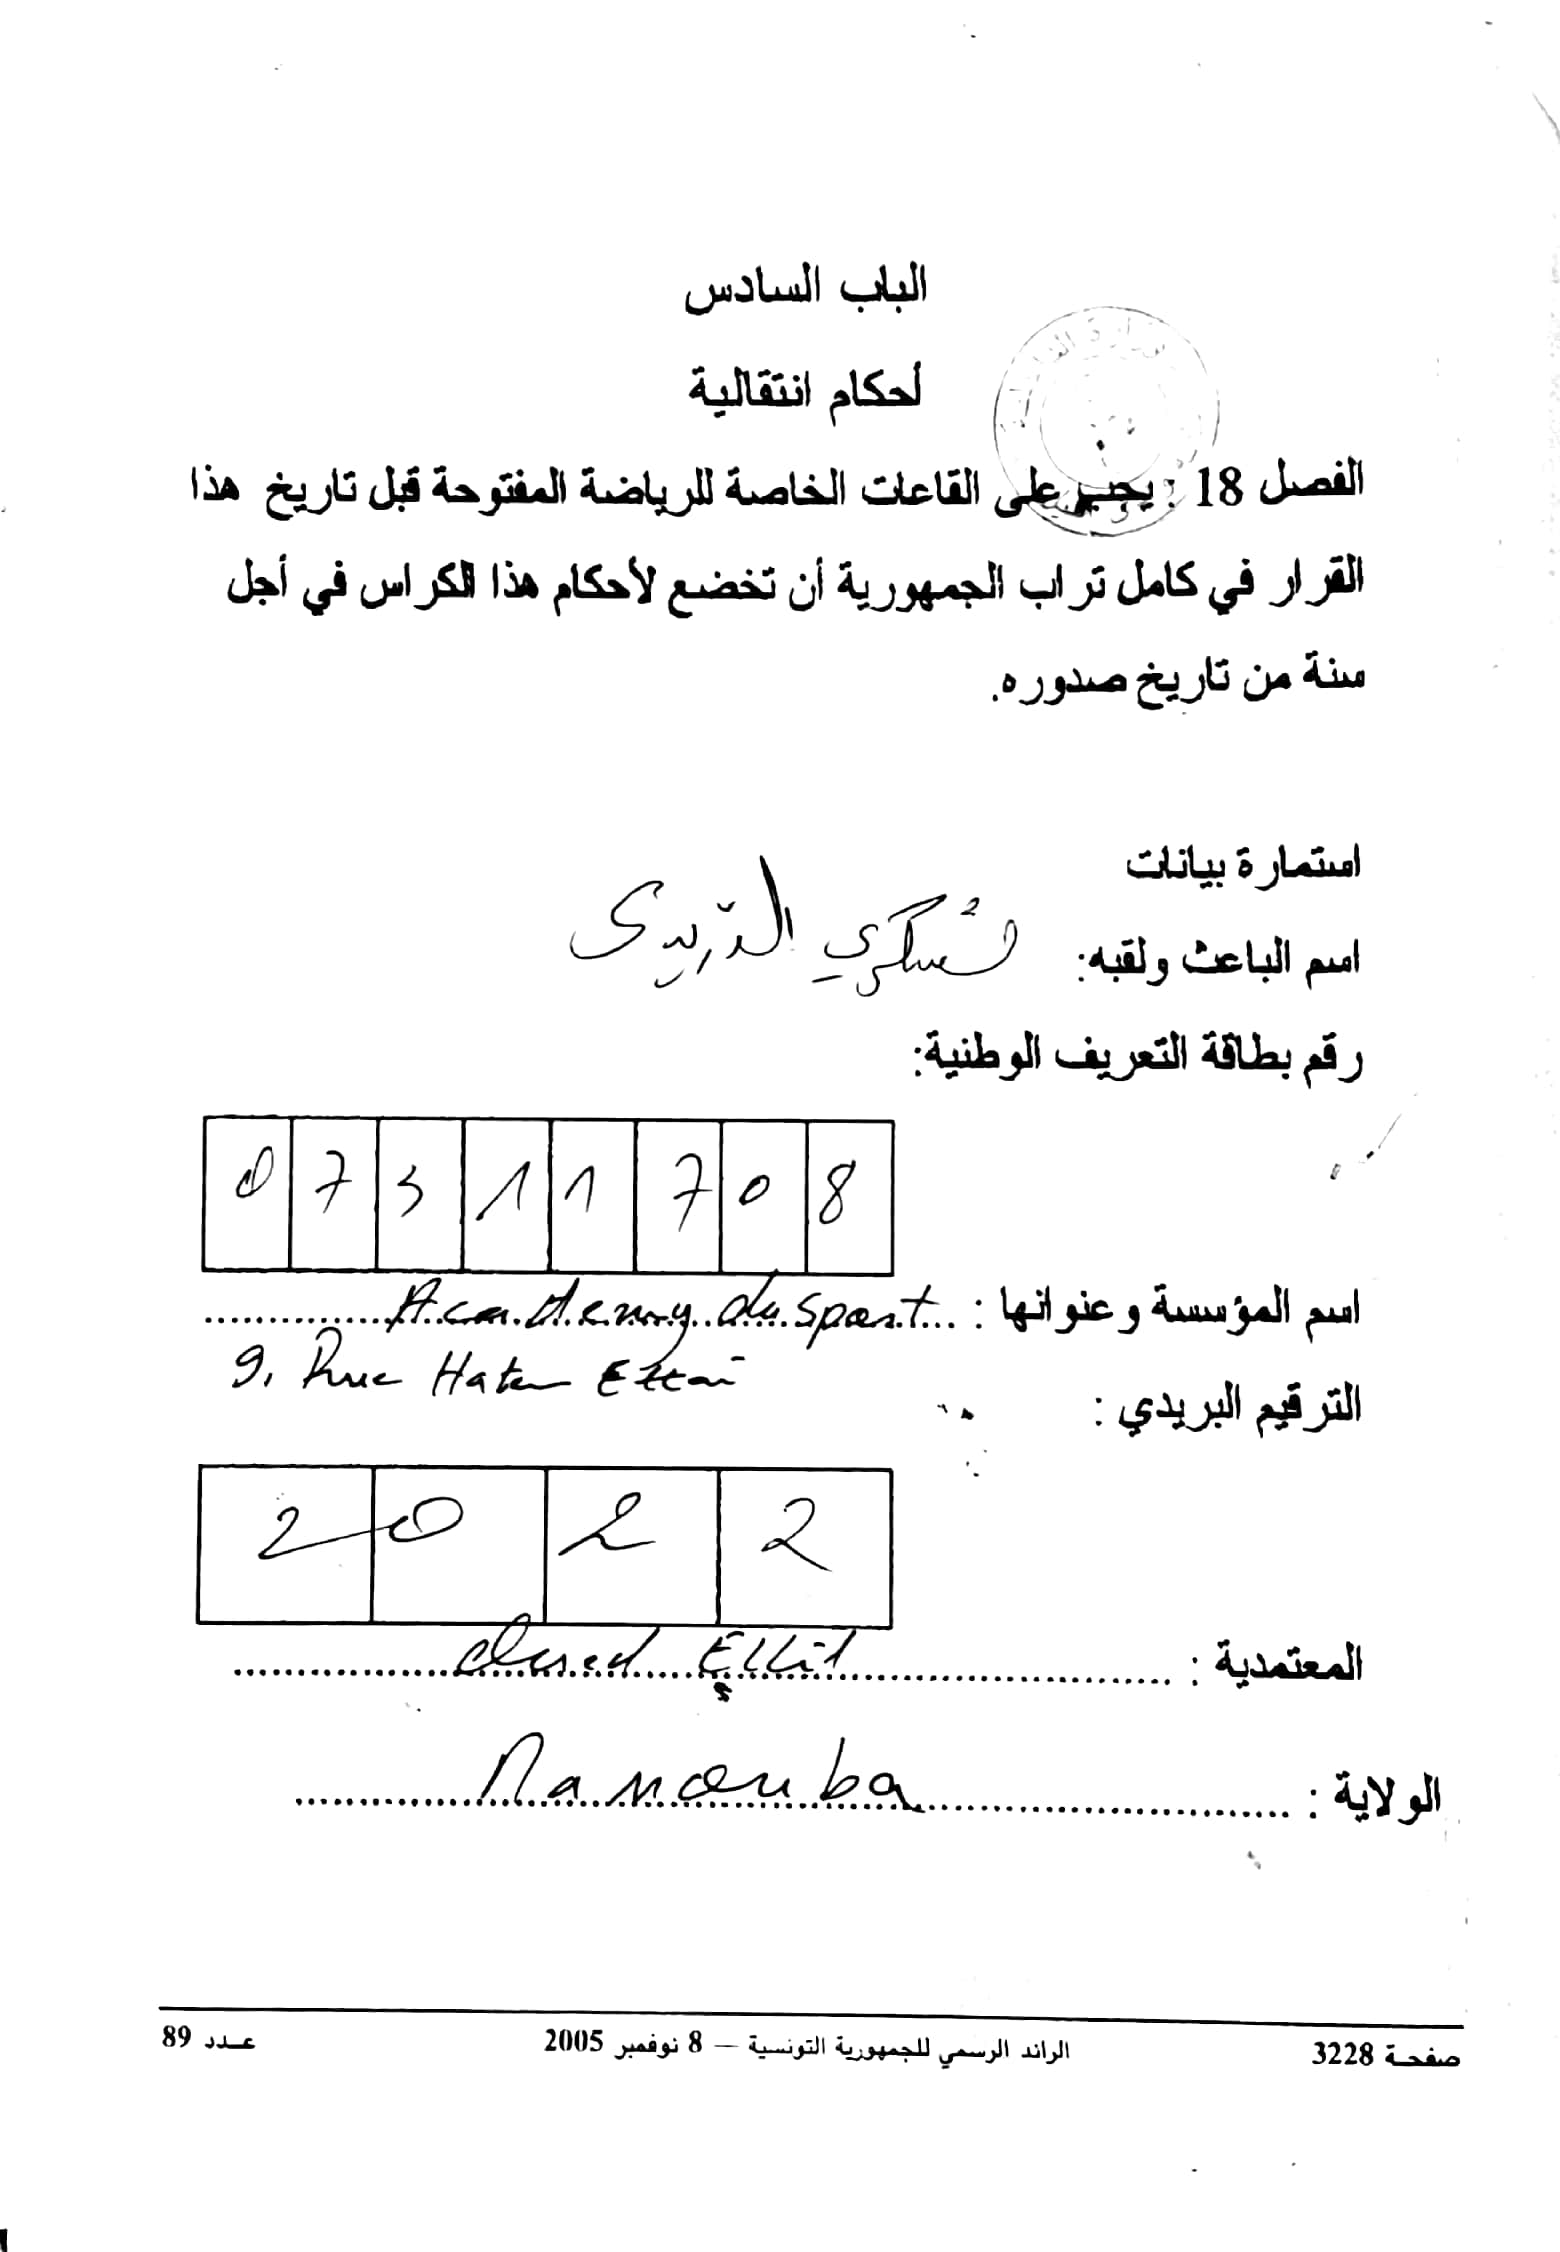 الباب السادس
أحكام انتقالية
الفصل 18 : يجب على القاعات الخاصة للرياضة المفتوحة قبل تاريخ هذا
القرار في كامل تراب الجمهورية أن تخضع لأحكام هذا الكراس في أجل
سنة من تاريخ صدوره.
استمارة بيانات
اسم الباعث ولقبه: الدريدي
رقم بطاقة التعريف الوطنية:
0 7 3 1 1 7 0 8
اسم المؤسسة وعنوانها : Academy du sport
9, Rue Hatem Ettai
الترقيم البريدي :
2 0 2 2
المعتمدية : Oued Ellil
الولاية : Manouba
صفحة 3228 الرائد الرسمي للجمهورية التونسية — 8 نوفمبر 2005 عدد 89